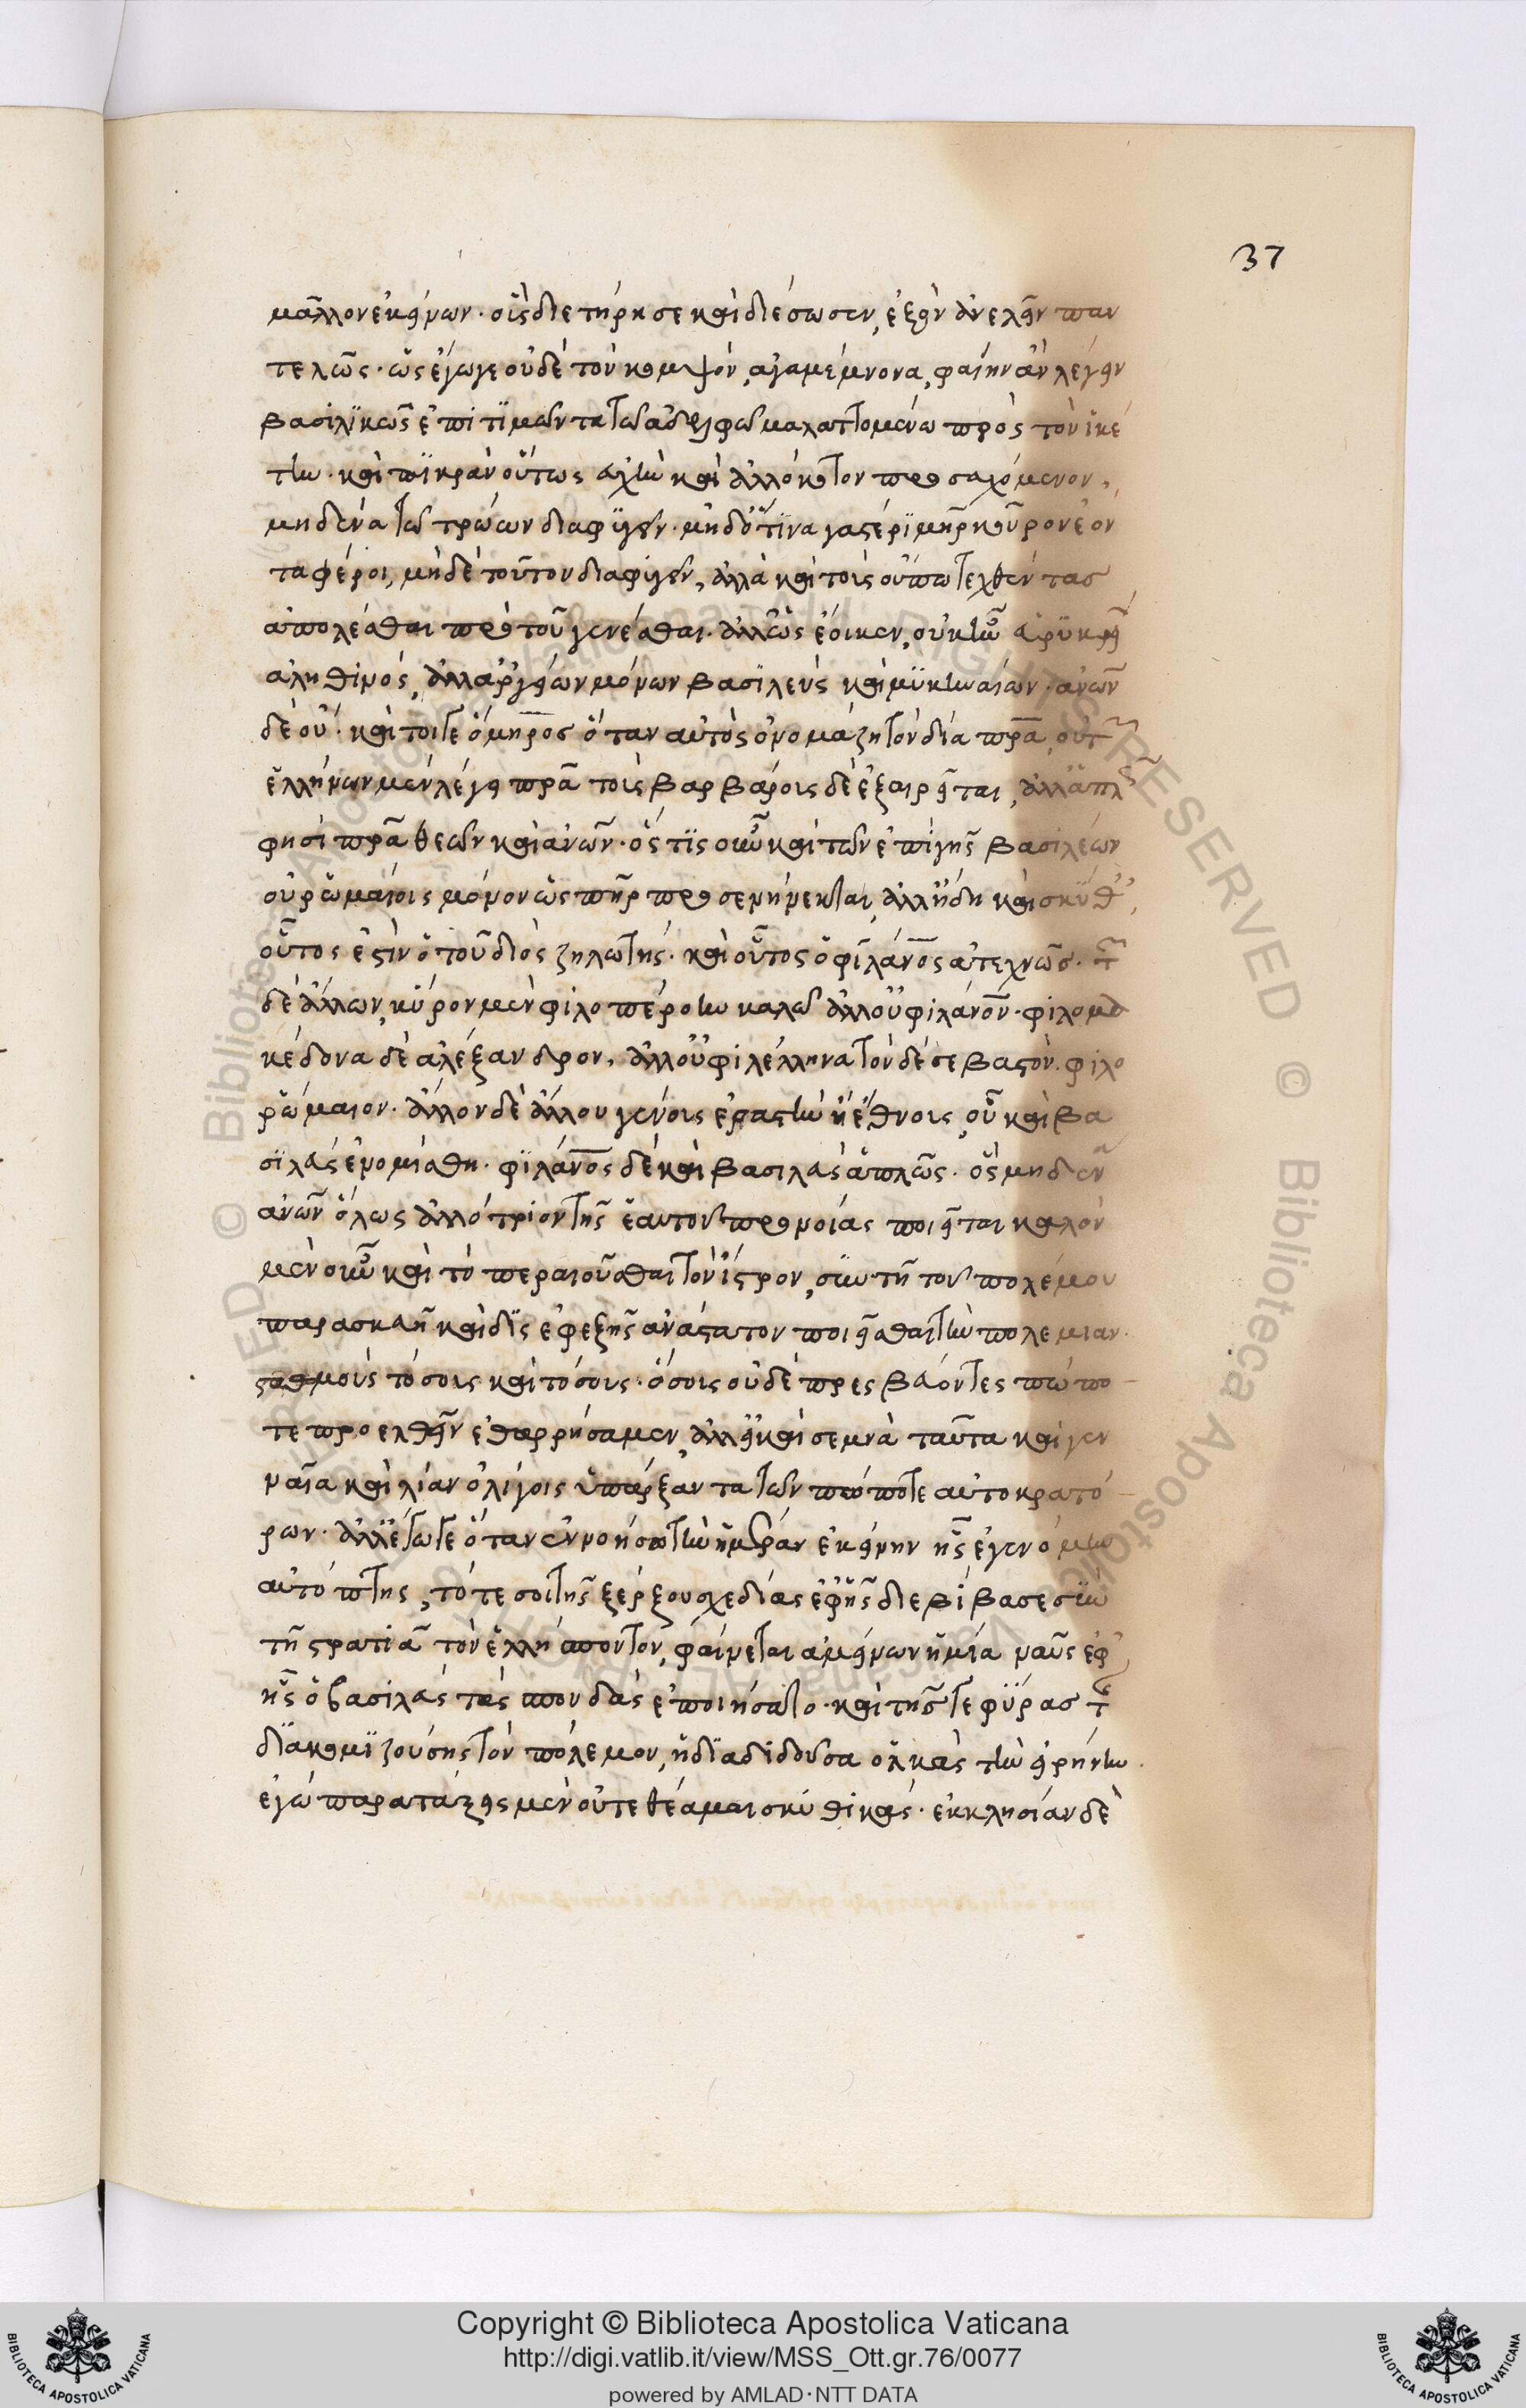 37
μᾶλλον ἐκείνων· οἷς διετήρησε καὶ διέσωσεν, ἐξὸν ἀνελεῖν παν
τελῶς· ὡς ἔγωγε οὐδὲ τὸν κομψὸν ἀγαμέμνονα, φαίην ἂν λέγειν
βασιλικῶς ἐπιτιμῶντα τῶ ἀδελφῶ μαλαττομένω πρὸς τὸν ἱκέ
την· καὶ πικρὰν οὕτως εὐχὴν καὶ ἀλλόκοτον προσευχόμενον,
μηδένα τῶν τρώων διαφυγεῖν· μηδ' ὅντινα γαστέρι μηρ κοῦρον ἐόν
τα φέροι, μηδὲ τοῦτον διαφυγεῖν, ἀλλὰ καὶ τοὺς οὔπω τεχθέντας
ἀπολέσθαι πρὸ τοῦ γενέσθαι. ἀλλ' ὡς ἔοικεν, οὐκ ἦν εὐρυκρεί
ἀληθινός, ἀλλ' ἀργείων μόνων βασιλεὺς καὶ μυκηναίων· ανων
δὲ οὔ· καίτοι γε ὅμηρος ὅταν αὐτὸς ὀνομάζη τὸν δία πρα, οὔτ
ἑλλήνων μὲν λέγει πρα τοὺς βαρβάρους δὲ ἐξαιρεῖται, ἀλλ' ἁπλ
φησὶ πρα θεῶν καὶ ανων· ὅς τις οὖν καὶ τῶν ἐπὶ γῆς βασιλέων
οὐ ῥωμαίοις μόνον ὡς πηρ προσενήνεκται, ἀλλ' ἤδη καὶ σκύθ
οὗτος ἐστὶν ὁ τοῦ διὸς ζηλωτής· καὶ οὗτος ὁ φιλανος ἀτεχνῶς· τ
δὲ ἄλλων, κύρον μὲν φιλοπέρσην καλῶ ἀλλ' οὐ φιλανον· φιλομα
κέδονα δὲ ἀλέξανδρον, ἀλλ' οὐ φιλέλληνα τὸν δὲ σεβαστὸν φιλο
ρώμαιον· ἄλλον δὲ ἄλλου γένους ἐραστὴν ἢ ἔθνους, οὗ καὶ βα
σιλεὺς ἐνομίσθη· φιλανος δὲ καὶ βασιλεὺς ἁπλῶς· ὃς μηδεν
ανων ὅλως ἀλλότριον τῆς ἑαυτοῦ προνοίας ποιεῖται καλὸν
μὲν οὖν καὶ τὸ περαιοῦσθαι τὸν ἴστρον, σὺν τῆ τοῦ πολέμου
παρασκευῆ καὶ δὶς ἐφεξῆς ἀνάστατον ποιεῖσθαι τὴν πολεμίαν·
σταθμοὺς τόσους καὶ τόσους· ὅσους οὐδὲ πρεσβεύοντες πώπο
τε προελθεῖν ἐθαρρήσαμεν, ἀλλ' εἰ καὶ σεμνὰ ταῦτα καὶ γεν
ναῖα καὶ λίαν ὀλίγοις ὑπάρξαντα τῶν πώποτε αὐτοκρατό
ρων· ἀλλ' ἔγωγε ὅταν ἐννοήσω τὴν ἡμέραν ἐκείνην ἧς ἐγενόμην
αὐτόπτης, τότε σοι τῆς ξέρξου σχεδίας ἐφ' ἧς διεβίβασε σὺν
τῆ στρατιᾶ τὸν ἑλλήσποντον, φαίνεται ἀμείνων ἡ μία ναῦς ἐφ'
ἧς ὁ βασιλεὺς τὰς σπονδὰς ἐποιήσατο· καὶ τῆς γεφύρας τ
διακομιζούσης τὸν πόλεμον, ἡ διαδιδοῦσα ὁλκὰς τὴν εἰρήνην·
ἐγὼ παρατάξεις μὲν οὔτε θέαμαι σκυθικάς· ἐκκλησίαν δὲ
Copyright © Biblioteca Apostolica Vaticana
http://digi.vatlib.it/view/MSS_Ott.gr.76/0077
powered by AMLAD·NTT DATA